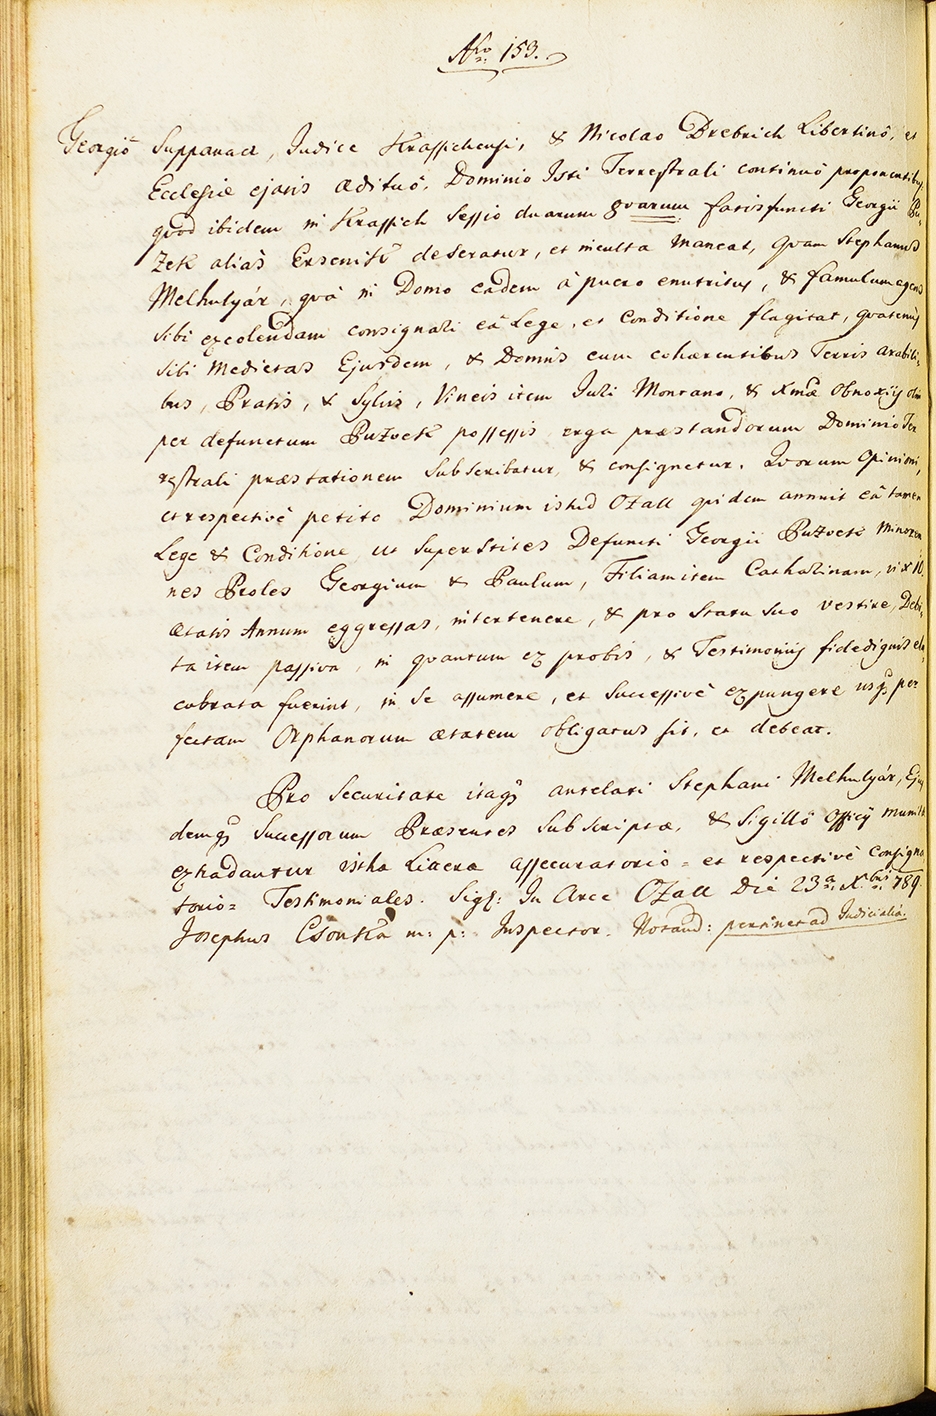 Nro 153.
Georgiô Suppanacz, Judice Krassichensi, & Nicolao Brebrich Libertinô, et
Ecclesiæ ejatis ædituô, Dominio Isti Terrestrali continuô proponentibus
quod ibidem in Krassich Sessio duarum quarum fatis functi Georgii Pu-
zek aliàs Ersenick deseratur, et inculta maneat, quam Stephanus
Melhulyár, quà in Domo eadem à puero enutritus, & famulum agens
sibi excolendam consignari eâ Lege, et Conditione flagitat, quatenus
sibi medietas Ejusdem, & Domus cum cohærentibus Terris arabili-
bus, Pratis, & Sylvis, Vineis item Juri Montano, & Xmæ obnoxiis olim
per defunctum Puzvek possessis erga præstandorum Dominio Ter
restrali præstationem Subscribatur, & consignetur. Quorum Opinioni,
et respectivè petito Dominium isthid Ozall quidem annuit eâ tamen
Lege & Conditione ut Superstites Defuncti Georgii Puzvek Minoren
nes Proles Georgium & Paulum, Filiam item Catharinam, vix 10.
ætatis Annum eggressas, intertenere, & pro Statu suo vestire, Debi-
ta item passiva, in quantum ex probis, & Testimoniis fide dignis elu-
cubrata fuerint, in se assumere, et Successivè expungere usq. per
fectam Orphanorum ætatem obligatus sit, et debeat.
Pro Securitate itaq. antelati Stephani Melhulyár, Ejus
demq. Successorum Præsentes Subscriptæ, & Sigillô Officij munitæ
exhadantur isthæ Literæ assecuratorio = et respectivè Consigna
torio = Testimoniales. Sigl: In Arce Ozall Die 23a Xbris 789.
Josephus Csonka m: p: Inspector. Notand: pertinet ad Judicialia.